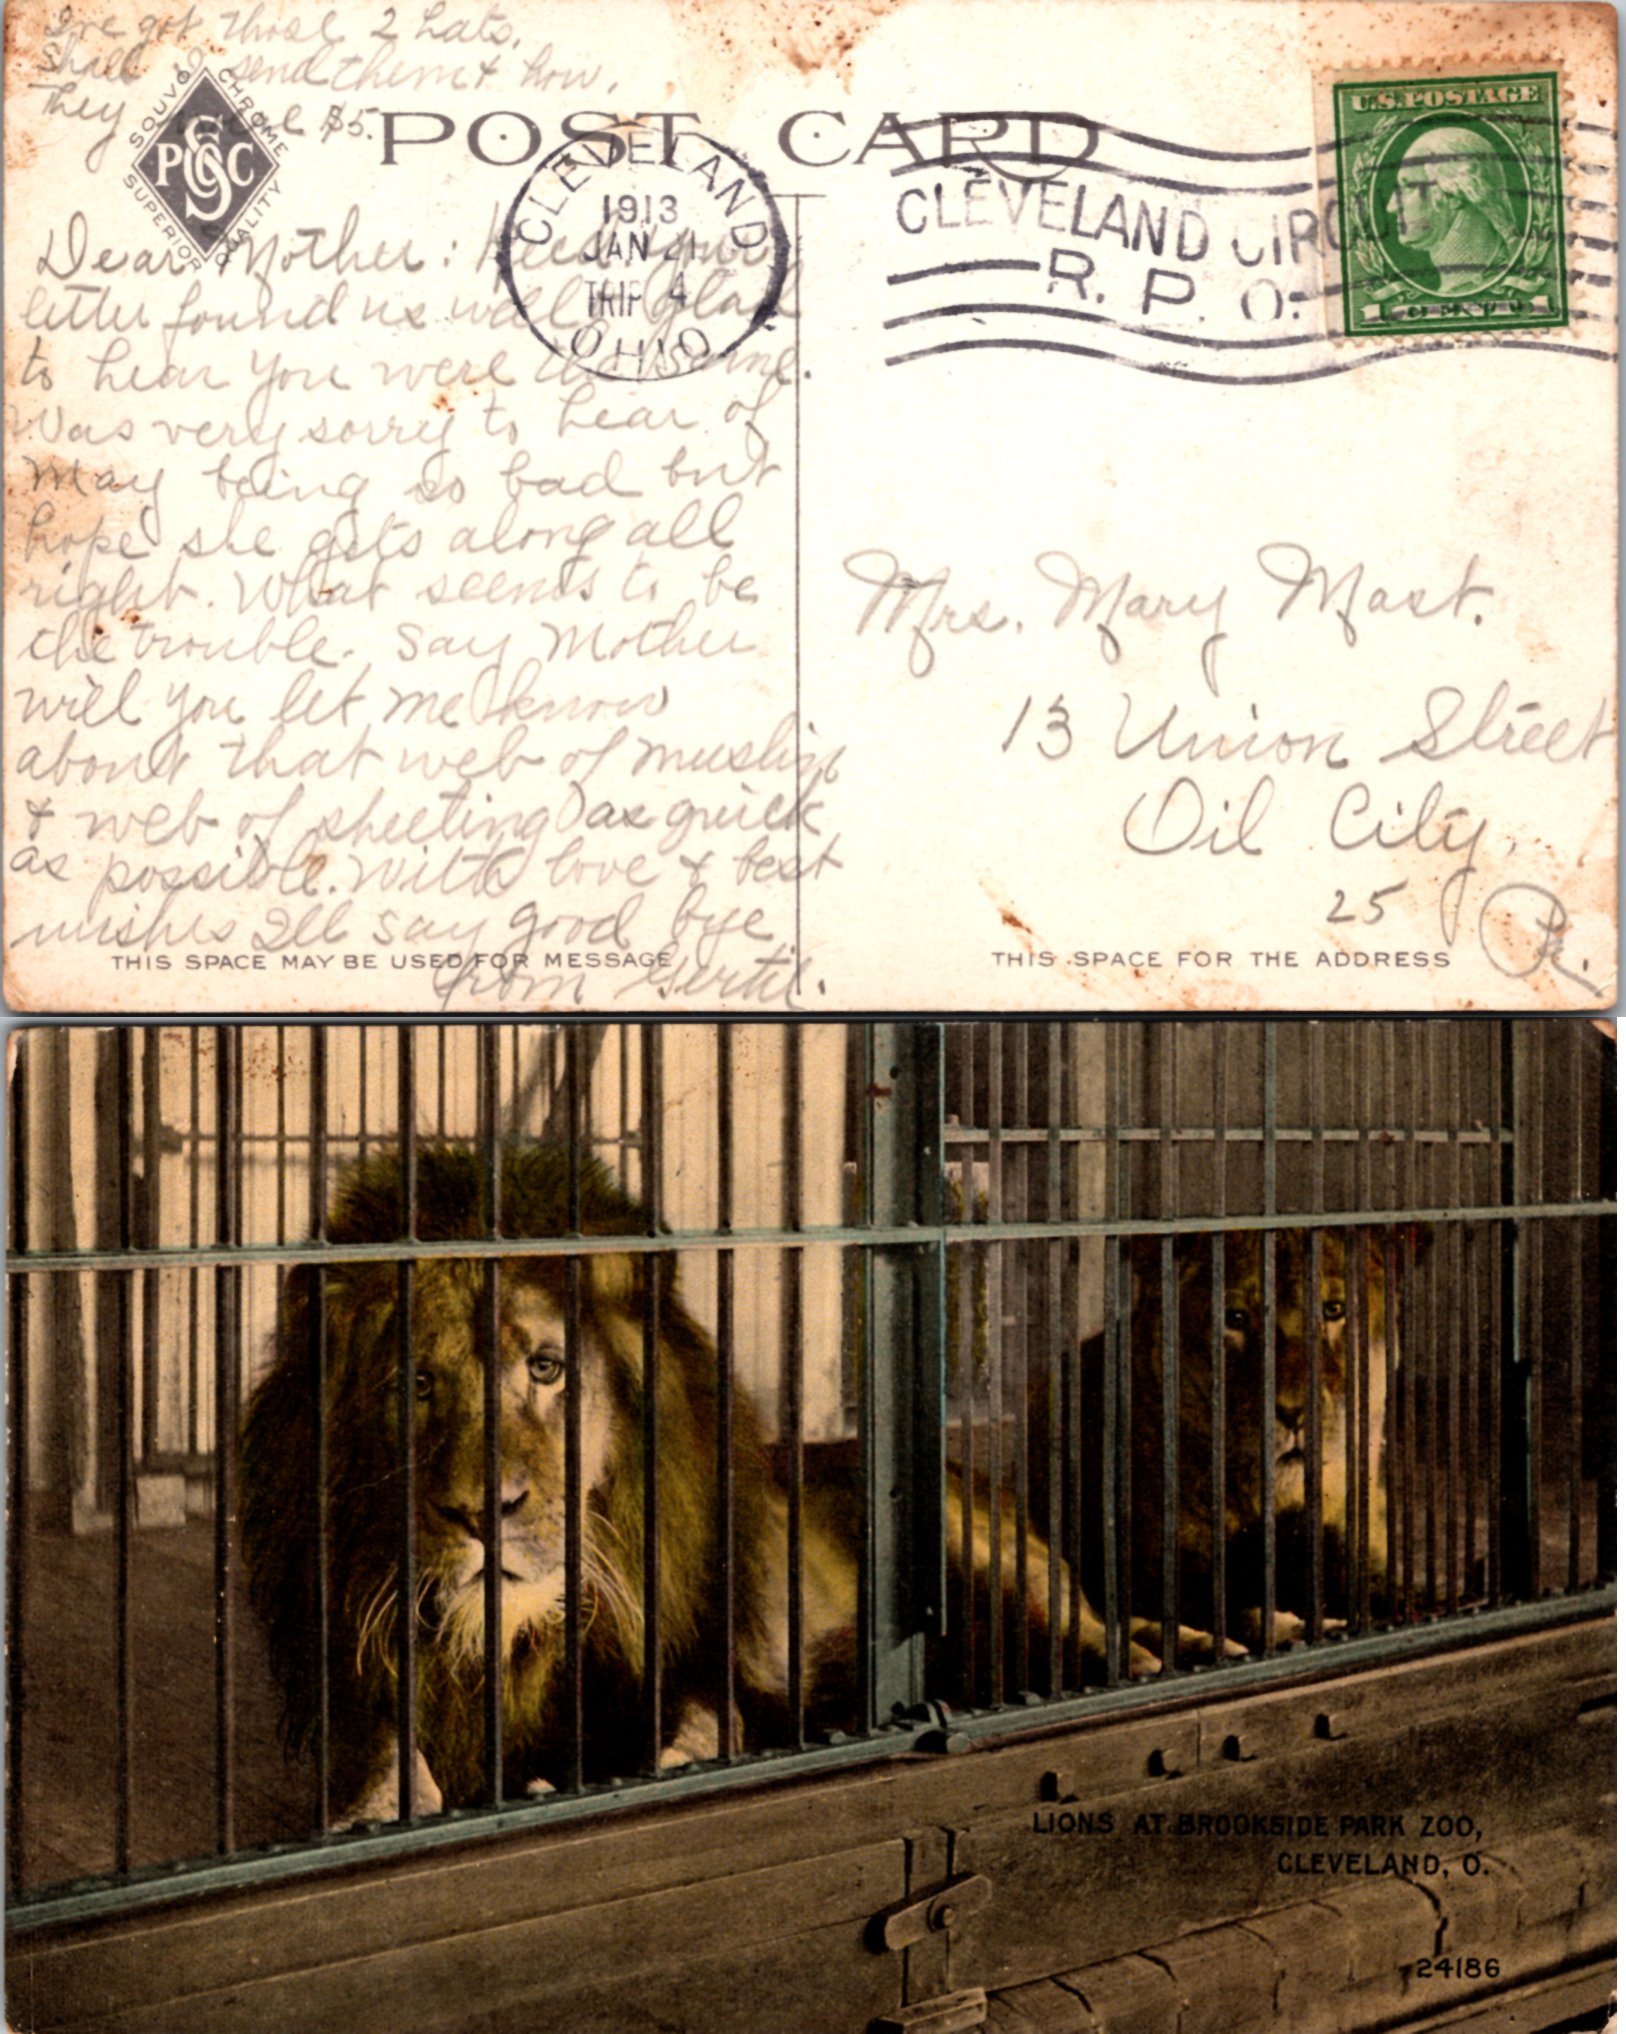 I've got those 2 hats.
Shall I send them & how.
They $5.
SOUVO CHROME
PSCC
SUPERIOR QUALITY
POST CARD
CLEVELAND
1913
JAN 21
TRIP 4
OHIO
CLEVELAND CIRCUIT
R. P. O.
U.S. POSTAGE
Dear Mother: Rec'd your
letter found us well. Glad
to hear you were the same.
Was very sorry to hear of
May being so bad but
hope she gets along all
right. What seems to be
the trouble. Say Mother
will you let me know
about that web of muslin
& web of sheeting as quick
as possible. With love & best
wishes I'll say good bye
from Gertie.
Mrs. Mary Mast.
13 Union Street
Oil City,
25 Pa.
THIS SPACE MAY BE USED FOR MESSAGE
THIS SPACE FOR THE ADDRESS
LIONS AT BROOKSIDE PARK ZOO,
CLEVELAND, O.
24186